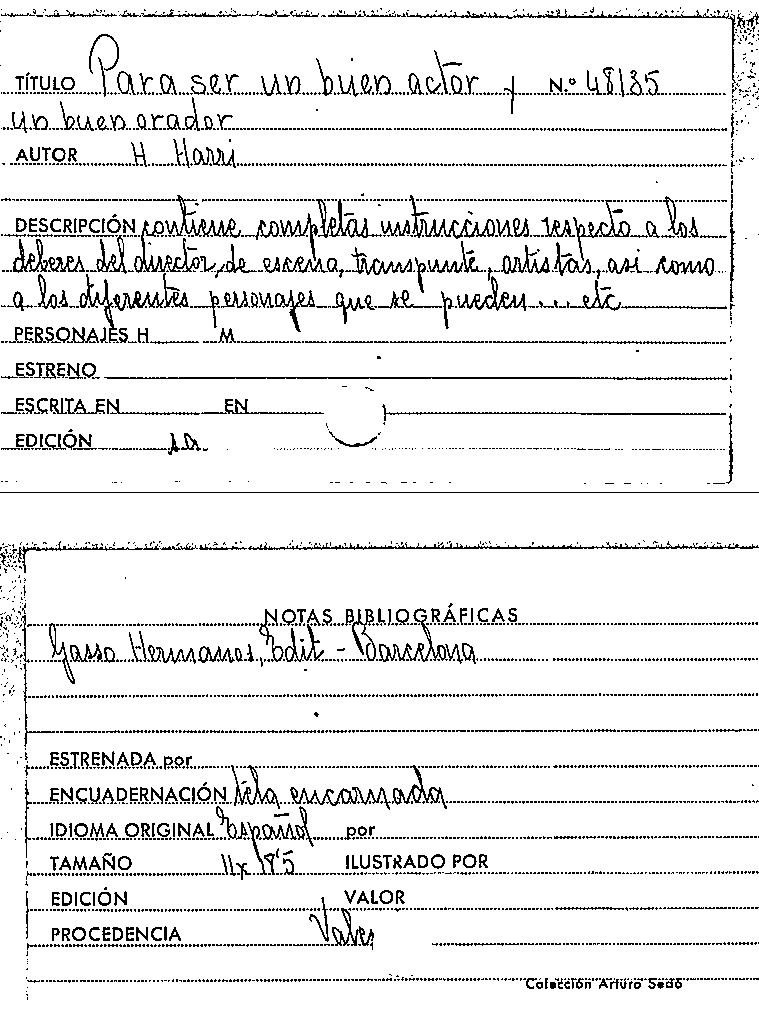 TÍTULO Para ser un buen actor y N.º 48135
un buen orador
AUTOR H Harri
DESCRIPCIÓN contiene completas instrucciones respecto a los
deberes del director, de escena, transpunte, artistas, asi como
a los diferentes personajes que se pueden... etc
PERSONAJES H M
ESTRENO
ESCRITA EN EN
EDICIÓN s.a.
NOTAS BIBLIOGRÁFICAS
Gasso Hermanos, Edit - Barcelona
ESTRENADA por
ENCUADERNACIÓN tela encarnada
IDIOMA ORIGINAL Español por
TAMAÑO 11x18'5 ILUSTRADO POR
EDICIÓN VALOR
PROCEDENCIA
Colección Arturo Sedó